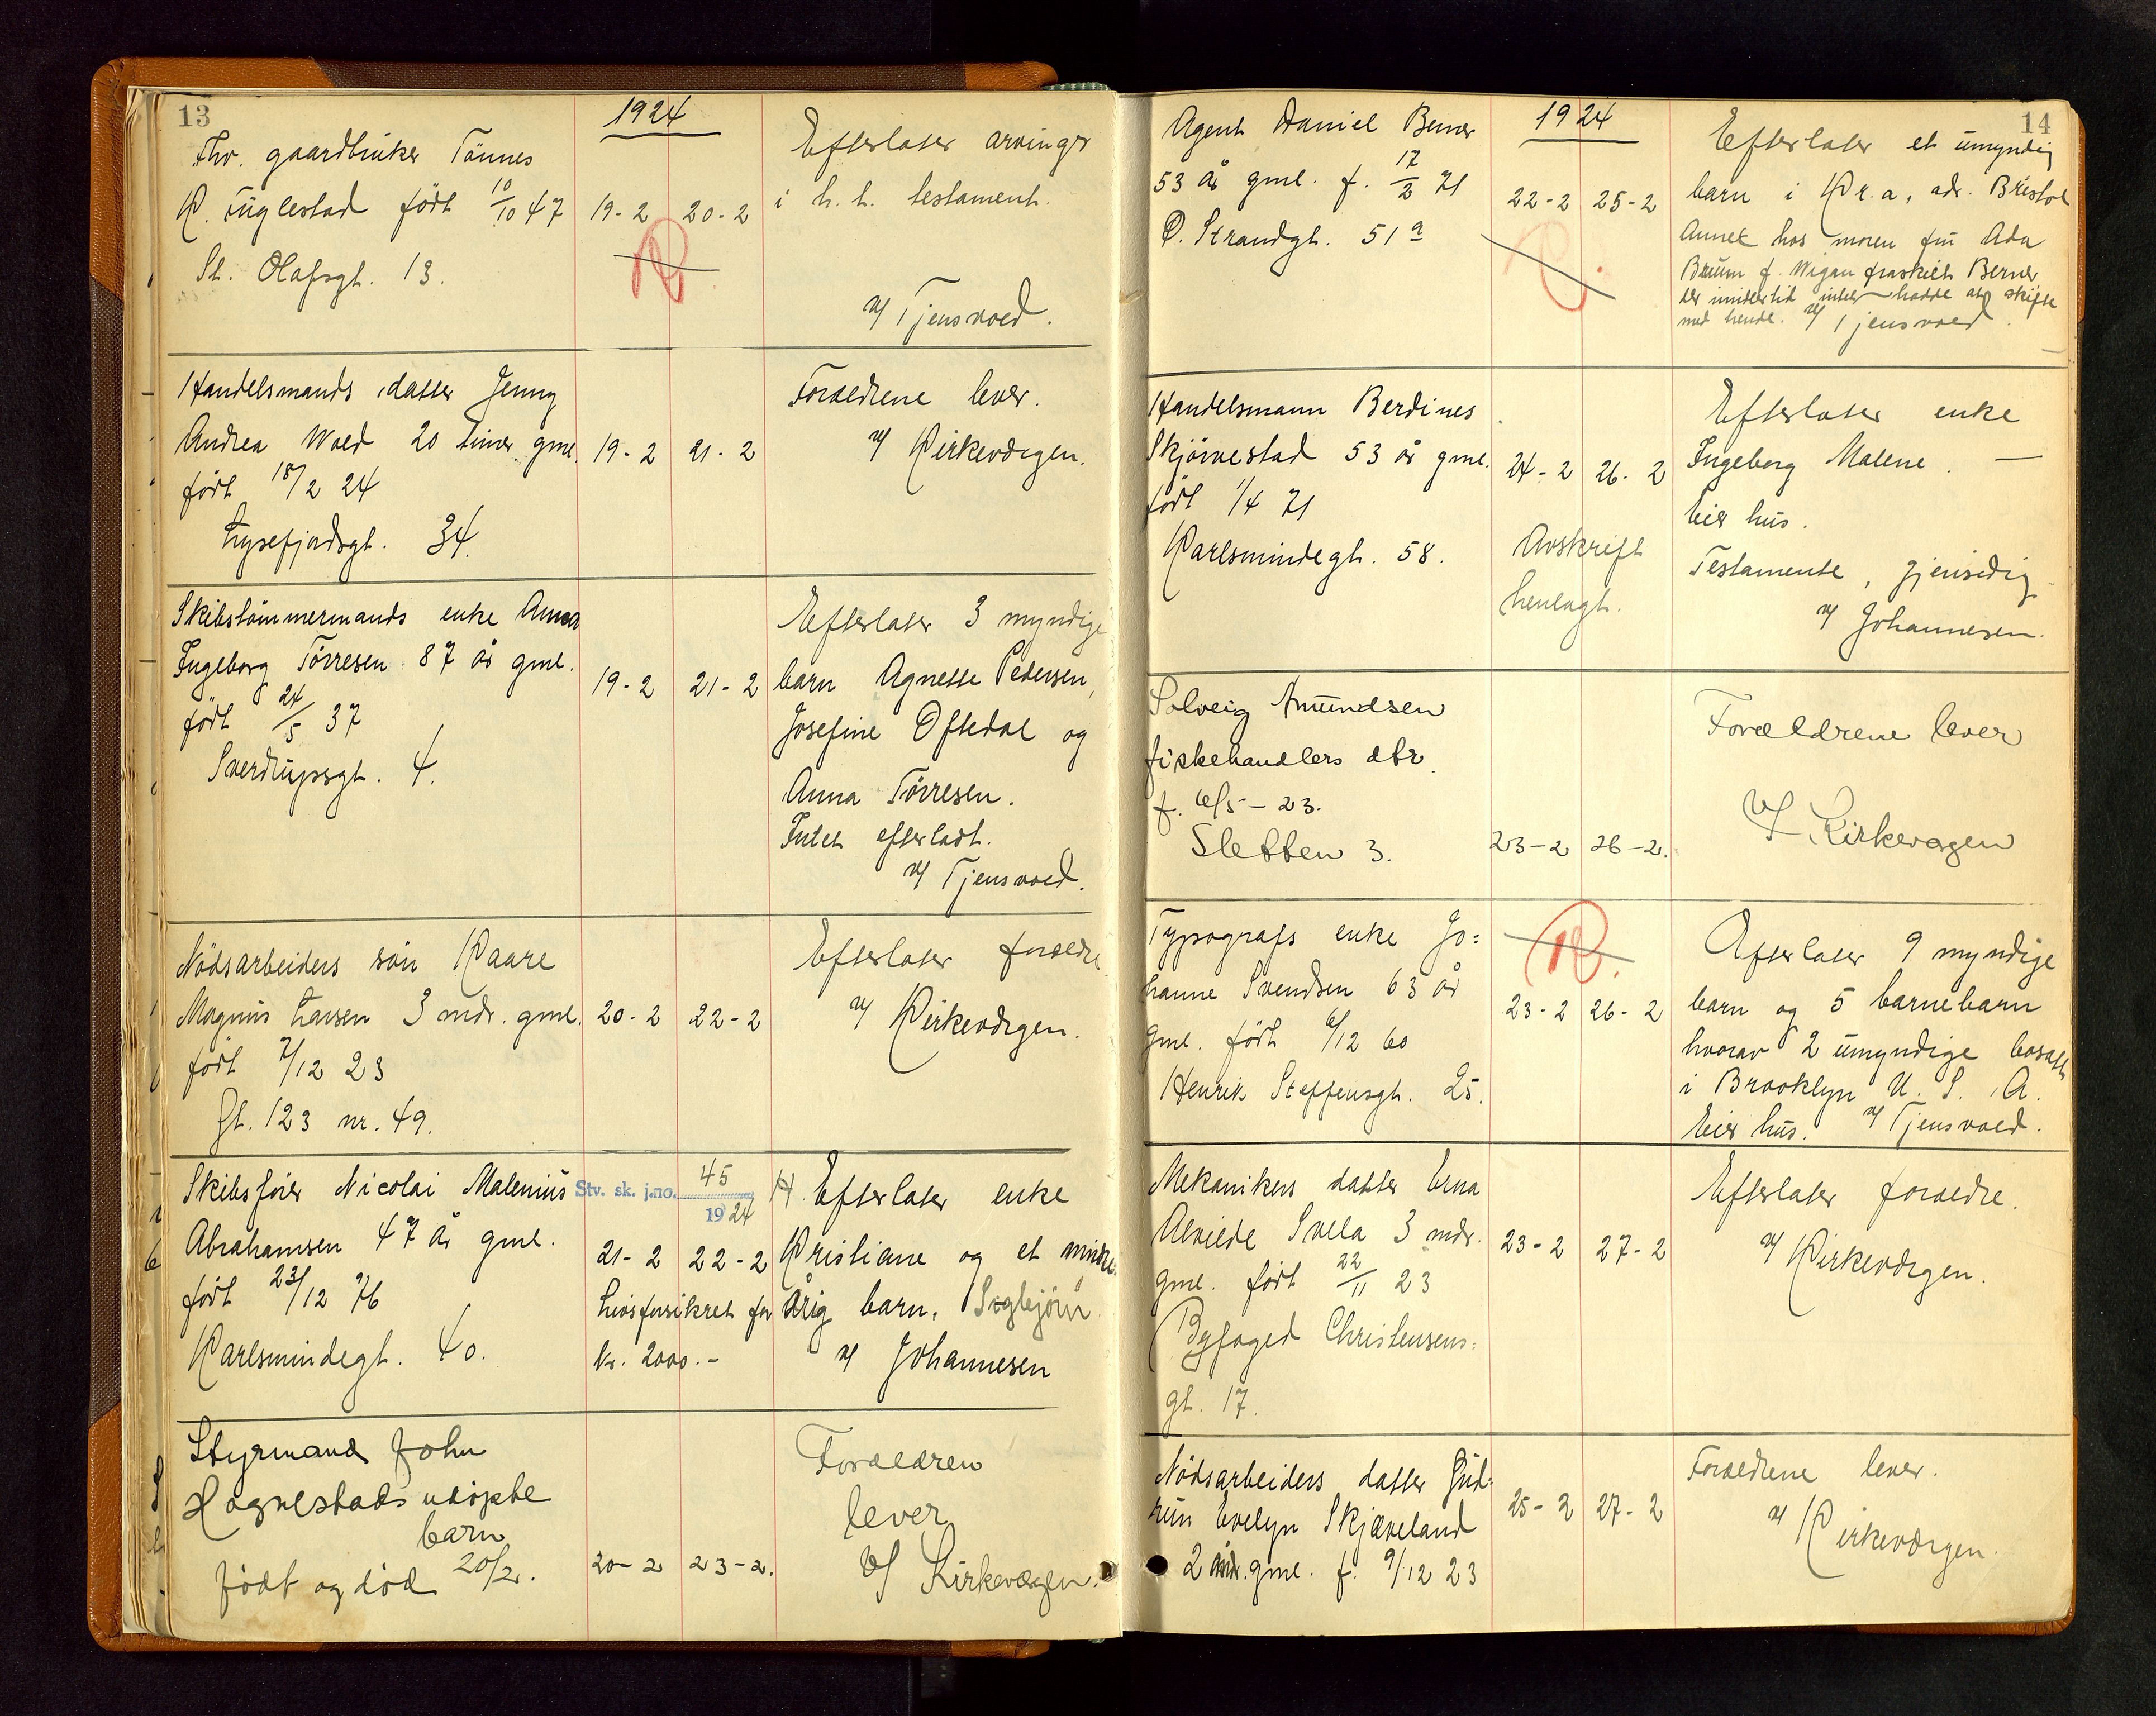 13
1924
Fhv. gaardbruker Tönnes
K. Fuglestad født 10/10 47
St. Olafsgt. 13.
19-2 20-2
Efterlater arvinger
i h. t. testament.
v/ Tjensvoed.
Handelsmands datter Jenny
Andrea Woed 20 timer gml.
født 18/2 24
Lysefjordsgt. 34.
19-2 21-2
Foraeldrene lever.
v/ Kirkeværgen.
Skibstømmermands enke Anna
Ingeborg Törresen 87 år gml.
født 24/5 37
Sverdrupsgt. 4.
19-2 21-2
Efterlater 3 myndige
barn Agnette Pedersen,
Josefine Oftedal og
Anna Törresen.
Intet efterladt.
v/ Tjensvoed.
Nødsarbeiders sön Kaare
Magnus Larsen 3 mdr. gml.
født 7/12 23
Gt. 123 nr. 49.
20-2 22-2
Efterlater foraeldre
v/ Kirkeværgen.
Skibsfører Nicolai Malenius
Abrahamsen 47 år gml.
født 23/12 76
Karlsmindegt. 40.
Stv. sk. j.no. 45
1924
21-2 22-2
Livsforsikret for
kr. 2000.-
H. Efterlater enke
Kristiane og et mindre-
årig barn, Sigbjörn.
v/ Johannesen
Styrmand John
Hognestads udøpte
barn
født og død 20/2.
20-2 23-2.
Foraeldren
lever
v/ Kirkevaegen.
14
1924
Agent Daniel Berner
53 år gml. f. 17/2 71
Ø. Strandgt. 51 a
22-2 25-2
Efterlater et umyndig
barn i Kr.a, adr. Bristol
Annex hos moren fru Ada
Bruun f. Wigan fraskilt Berner,
der imidlertid intet hadde at skifte
med hende. v/ Tjensvoed.
Handelsmann Berdines
Skjörvestad 53 år gml.
født 1/4 71
Karlsmindegt. 58.
24-2 26-2
Avskrift
henlagt.
Efterlater enke
Ingeborg Malene.
Eier hus.
Testamente, gjensidig
v/ Johannesen.
Solveig Amundsen
fiskehandlers dtr.
f. 6/5-23.
Sletten 3.
23-2 26-2.
Foraeldrene lever
v/ Kirkevaegen
Typografs enke Jo=
hanne Svendsen 63 år
gml. født 6/12 60
Henrik Steffensgt. 25.
23-2 26-2
Efterlater 9 myndige
barn og 5 barnebarn
hvorav 2 umyndige bosatt
i Brooklyn U. S. A.
Eier hus. v/ Tjensvoed.
Mekanikers datter Erna
Alvilde Svela 3 mdr.
gml. født 22/11 23
Byfoged Christensens=
gt. 17.
23-2 27-2
Efterlater foraeldre.
v/ Kirkeværgen.
Nödsarbeiders datter Gud-
run Evelyn Skjæveland
2 mdr. gml. f. 9/12 23
25-2 27-2
Foraeldrene lever.
v/ Kirkeværgen.